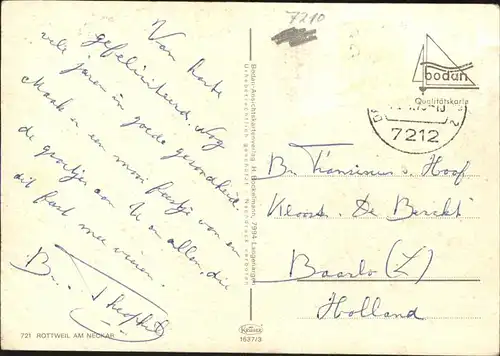 Van harte
gefeliciteerd. Nog
vele jaren in goede gezondheid.
Maak er een mooi feestje van en
de groetjes aan U en allen, die
dit feest mee vieren.
Br. Theophiel
721 ROTTWEIL AM NECKAR
Bodan-Ansichtskartenverlag, H. Bockelmann, 7994 Langenargen
Urheberrechtlich geschützt · Nachdruck verboten
Krüger
1637/3
7210
bodan
Qualitätskarte
7212
Br. Franciscus v. Hoof
Klooster De Berckt
Baarlo (L)
Holland